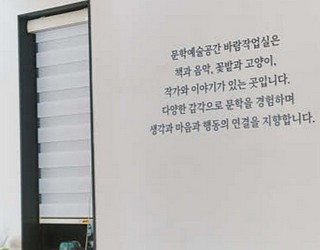 문학예술공간 바람작업실은
책과 음악, 꽃밭과 고양이,
작가와 이야기가 있는 곳입니다.
다양한 감각으로 문학을 경험하며
생각과 마음과 행동의 연결을 지향합니다.